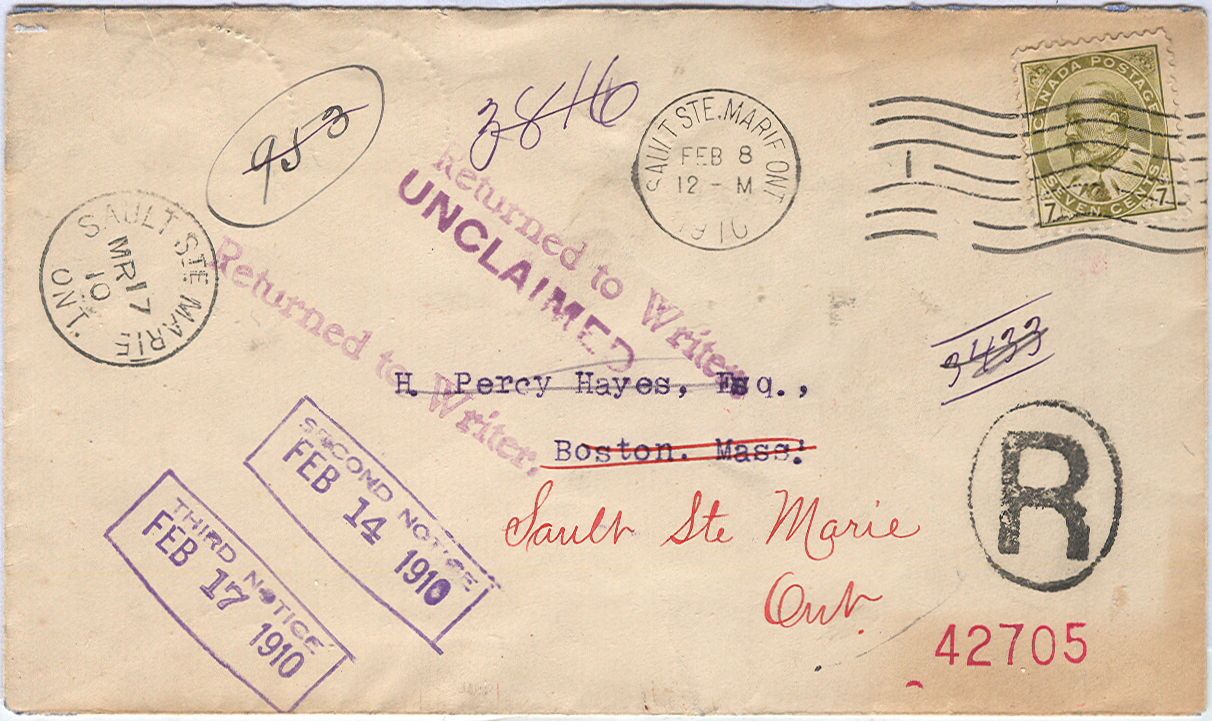 CANADA POSTAGE
7 SEVEN CENTS 7
3816
953
SAULT STE. MARIE ONT
FEB 8
12 - M
1910
1
SAULT STE. MARIE
MR 17
10
ONT.
Returned to Writer,
UNCLAIMED
Returned to Writer,
3433
H. Percy Hayes, Esq.,
Boston. Mass:
Sault Ste Marie
Ont.
R
42705
SECOND NOTICE
FEB 14 1910
THIRD NOTICE
FEB 17 1910